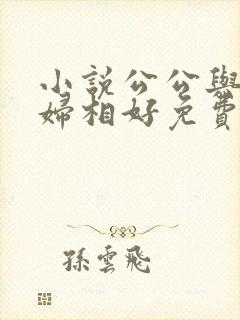 小說公公與
婦相好免費
孫雲飛